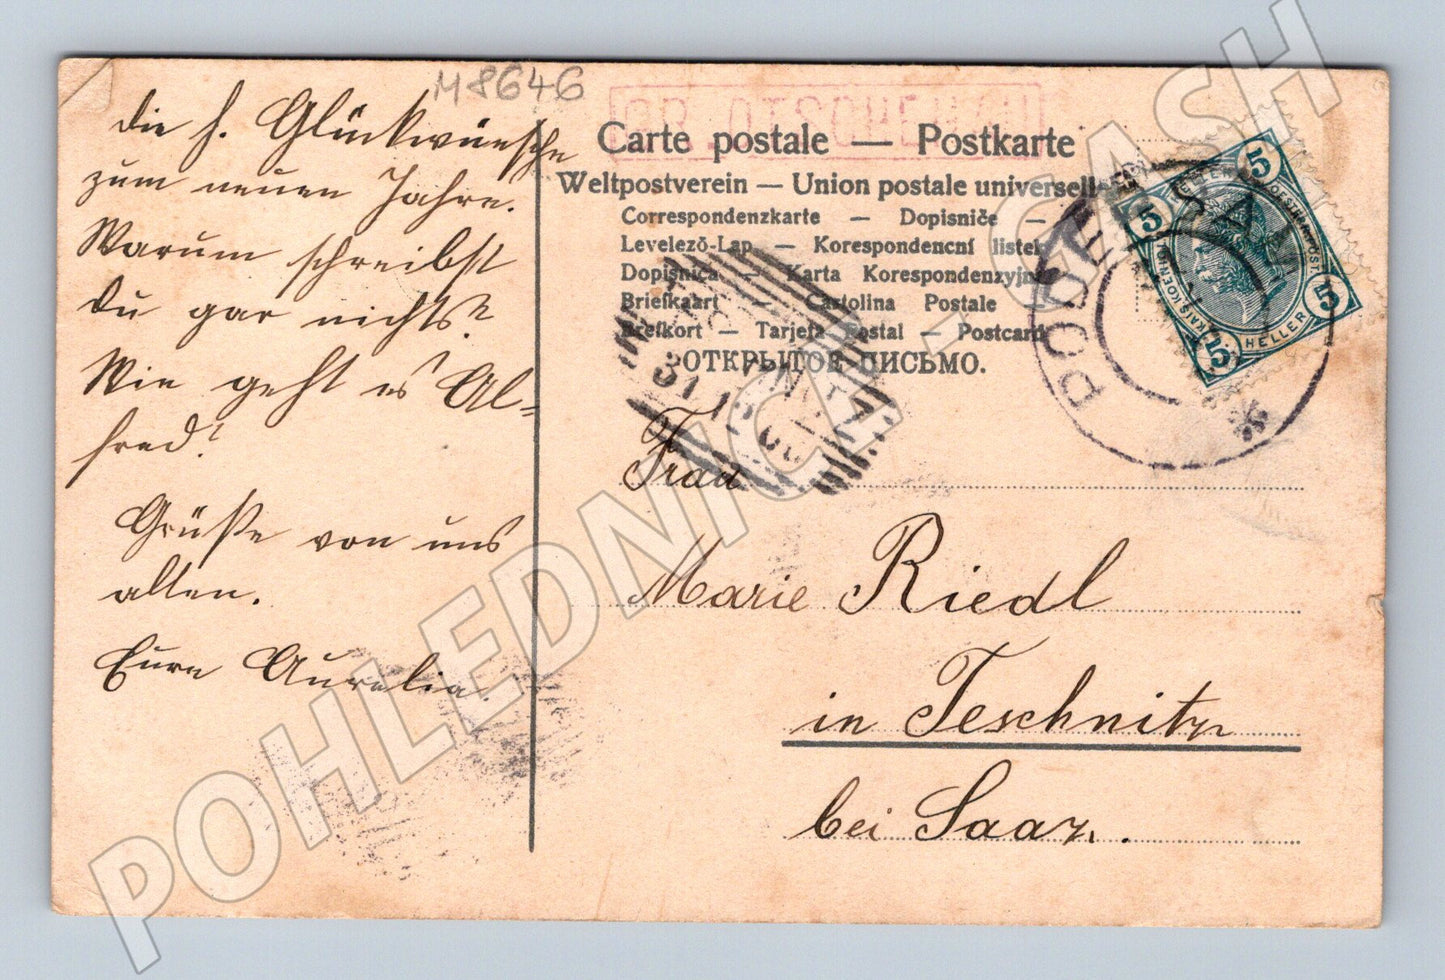 M 8646
die h. Glückwünsche
zum neuen Jahre.
Warum schreibst
du gar nichts?
Wie geht es Al=
fred?
Grüße von uns
allen.
Eure Aurelia
GR. OTSCHEHAU
Carte postale — Postkarte
Weltpostverein — Union postale universelle
Correspondenzkarte — Dopisniče —
Levelezö-Lap — Korespondencní listek
Dopisnica — Karta Korespondenzyjna
Briefkaart — Cartolina Postale
Brefkort — Tarjeta Postal — Postcard
ОТКРЫТОЕ ПИСЬМО.
5 5 5 5
HELLER
PODERSAM
31 12
Frau
Marie Riedl
in Teschnitz
bei Saaz.
POHLEDNICA - CASH